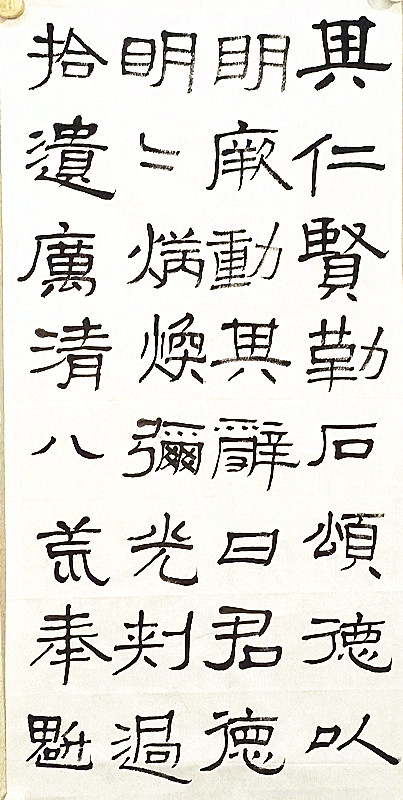 其仁賢勒石頌德以
明厥動其辭曰君德
明〻炳煥彌光刺過
拾遺厲清八荒奉魁